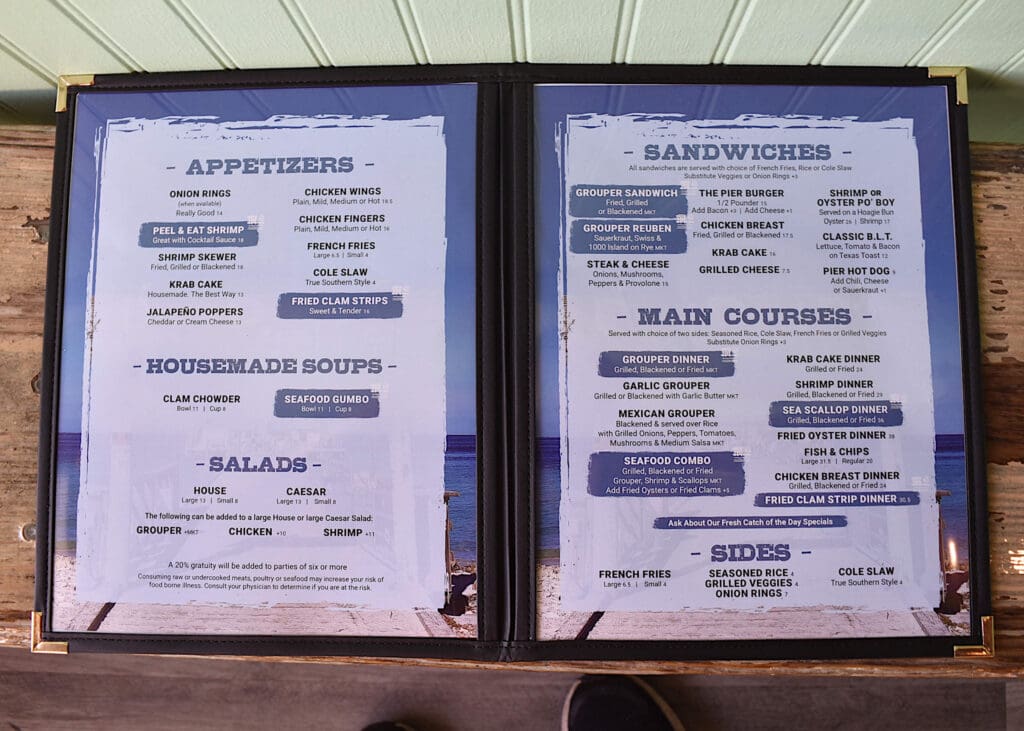 - APPETIZERS -
ONION RINGS
(when available)
Really Good 14
PEEL & EAT SHRIMP
Great with Cocktail Sauce 18
SHRIMP SKEWER
Fried, Grilled or Blackened 18
KRAB CAKE
Housemade. The Best Way 13
JALAPEÑO POPPERS
Cheddar or Cream Cheese 13
CHICKEN WINGS
Plain, Mild, Medium or Hot 19.5
CHICKEN FINGERS
Plain, Mild, Medium or Hot 16
FRENCH FRIES
Large 6.5 | Small 4
COLE SLAW
True Southern Style 4
FRIED CLAM STRIPS
Sweet & Tender 16
- HOUSEMADE SOUPS -
CLAM CHOWDER
Bowl 11 | Cup 8
SEAFOOD GUMBO
Bowl 11 | Cup 8
- SALADS -
HOUSE
Large 13 | Small 8
CAESAR
Large 13 | Small 8
The following can be added to a large House or large Caesar Salad:
GROUPER +MKT CHICKEN +10 SHRIMP +11
A 20% gratuity will be added to parties of six or more
Consuming raw or undercooked meats, poultry or seafood may increase your risk of
food borne illness. Consult your physician to determine if you are at the risk.
- SANDWICHES -
All sandwiches are served with choice of French Fries, Rice or Cole Slaw
Substitute Veggies or Onion Rings +3
GROUPER SANDWICH
Fried, Grilled
or Blackened MKT
GROUPER REUBEN
Sauerkraut, Swiss &
1000 Island on Rye MKT
STEAK & CHEESE
Onions, Mushrooms,
Peppers & Provolone 15
THE PIER BURGER
1/2 Pounder 15
Add Bacon +3 | Add Cheese +1
CHICKEN BREAST
Fried, Grilled or Blackened 17.5
KRAB CAKE 16
GRILLED CHEESE 7.5
SHRIMP OR
OYSTER PO' BOY
Served on a Hoagie Bun
Oyster 26 | Shrimp 17
CLASSIC B.L.T.
Lettuce, Tomato & Bacon
on Texas Toast 12
PIER HOT DOG 9
Add Chili, Cheese
or Sauerkraut +1
- MAIN COURSES -
Served with choice of two sides: Seasoned Rice, Cole Slaw, French Fries or Grilled Veggies
Substitute Onion Rings +3
GROUPER DINNER
Grilled, Blackened or Fried MKT
GARLIC GROUPER
Grilled or Blackened with Garlic Butter MKT
MEXICAN GROUPER
Blackened & served over Rice
with Grilled Onions, Peppers, Tomatoes,
Mushrooms & Medium Salsa MKT
SEAFOOD COMBO
Grilled, Blackened or Fried
Grouper, Shrimp & Scallops MKT
Add Fried Oysters or Fried Clams +5
KRAB CAKE DINNER
Grilled or Fried 24
SHRIMP DINNER
Grilled, Blackened or Fried 29
SEA SCALLOP DINNER
Grilled, Blackened or Fried 36
FRIED OYSTER DINNER 38
FISH & CHIPS
Large 31.5 | Regular 20
CHICKEN BREAST DINNER
Grilled, Blackened or Fried 24
FRIED CLAM STRIP DINNER 30.5
Ask About Our Fresh Catch of the Day Specials
- SIDES -
FRENCH FRIES
Large 6.5 | Small 4
SEASONED RICE 4
GRILLED VEGGIES 4
ONION RINGS 7
COLE SLAW
True Southern Style 4